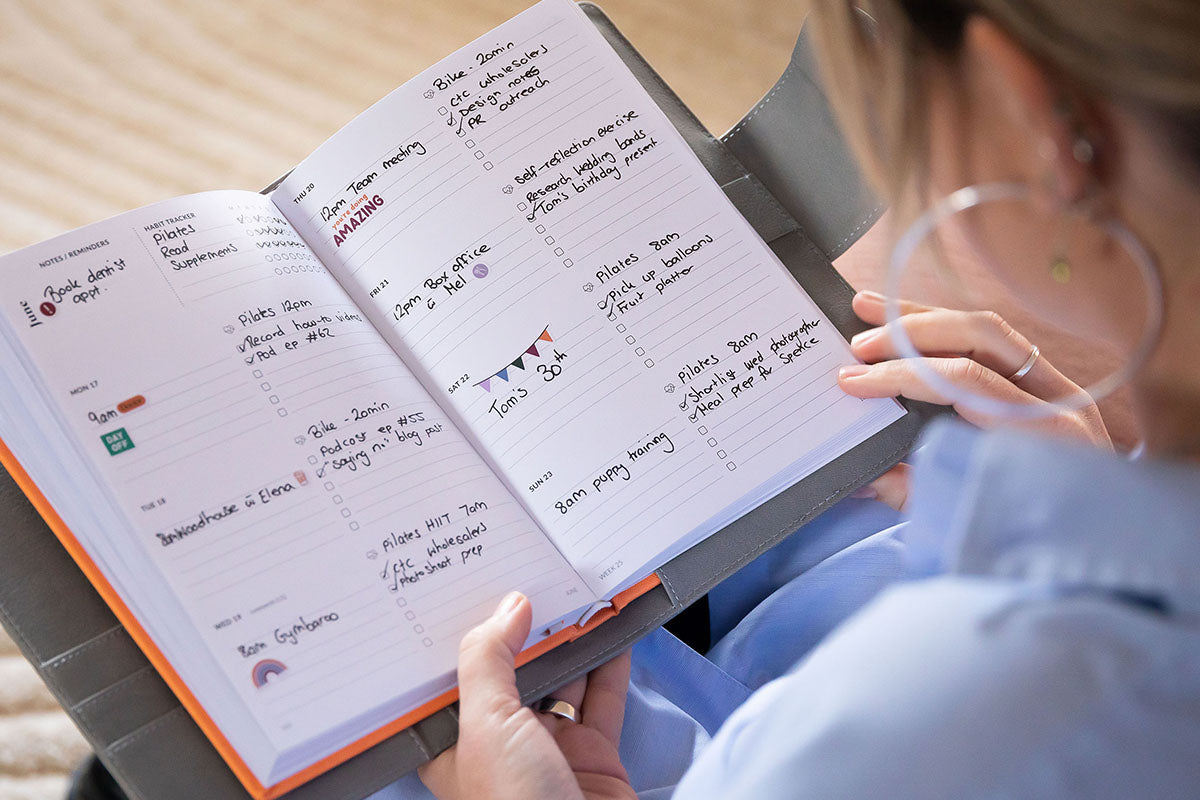 NOTES / REMINDERS
Book dentist
appt.
June
HABIT TRACKER
Pilates
Read
Supplements
MON 17
9am
DAY
OFF
Pilates 12pm
Record how-to videos
Pod ep #62
TUE 18
8am Woodhouse w Elena
Bike - 20min
Podcast ep #55
"Saying no" blog post
WED 19
8am Gymbaroo
Pilates HIIT 7am
CTC wholesalers
Photoshoot prep
THU 20
12pm Team meeting
you're doing
AMAZING
Bike - 20min
CTC wholesalers
Design notes
PR outreach
FRI 21
12pm Box office
w Mel
Self-reflection exercise
Research wedding bands
Tom's birthday present
SAT 22
Tom's 30th
Pilates 8am
Pick up balloons
Fruit platter
SUN 23
8am puppy training
Pilates 8am
Shortlist wed photographer
Meal prep for Spence
WEEK 25